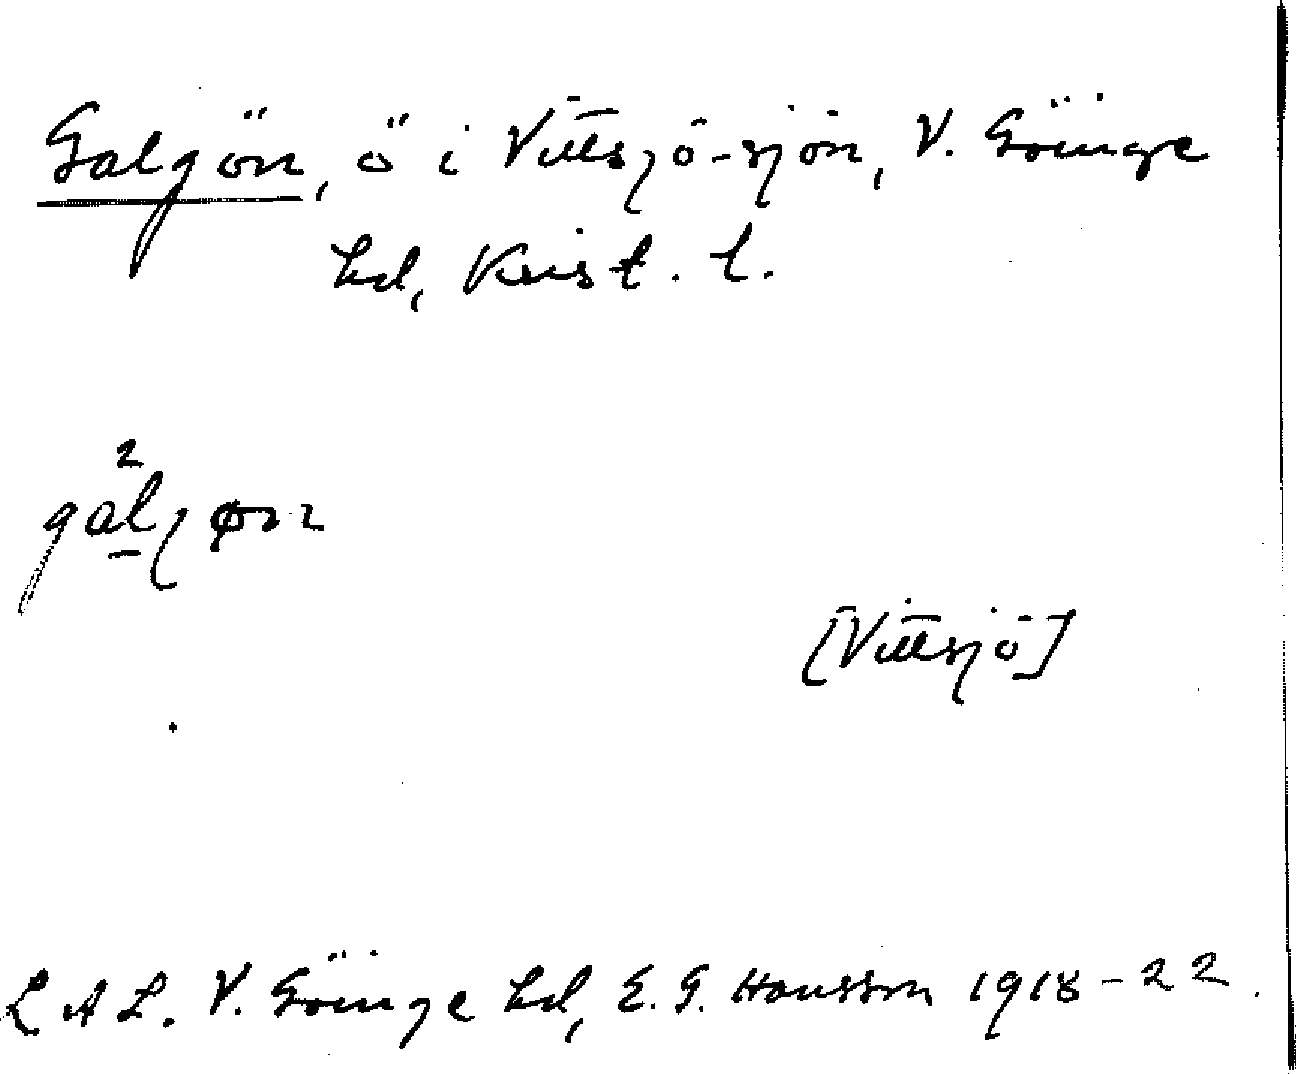 Galgön, ö i Vittsjö-sjön, V. Göinge
hd, Krist. l.
[Vittsjö]
L A L. V. Göinge hd, E. G. Hansson 1918-22.